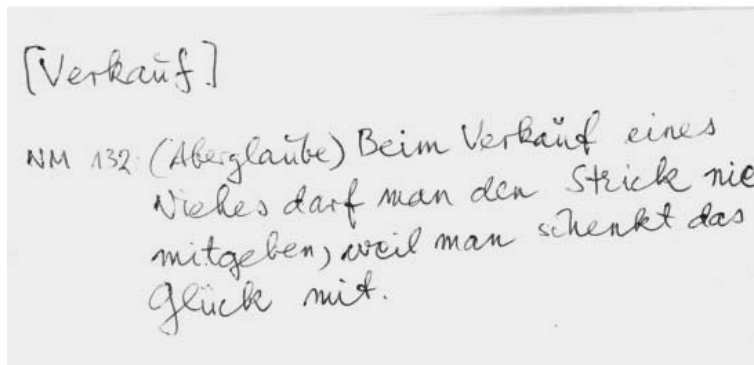 [Verkauf]
NM 132 (Aberglaube) Beim Verkauf eines
Viehes darf man den Strick nie
mitgeben, weil man schenkt das
Glück mit.